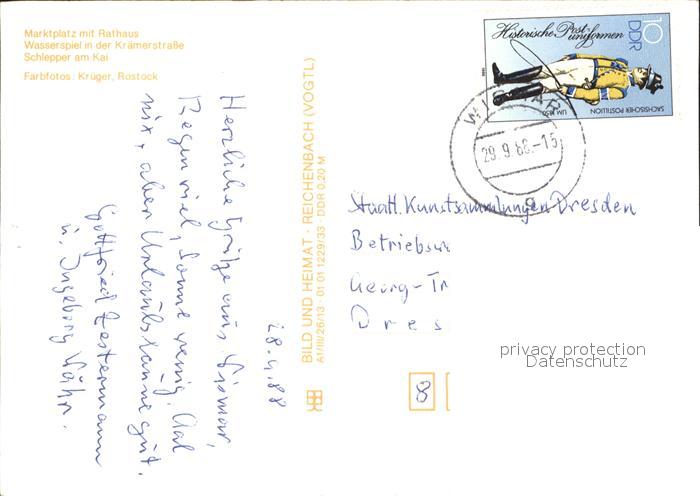 Marktplatz mit Rathaus
Wasserspiel in der Krämerstraße
Schlepper am Kai
Farbfotos: Krüger, Rostock
28.9.88
Herzliche Grüße aus Wismar,
Regen viel, Sonne wenig, Aal
nix, aber Urlaubslaune gut.
Gottfried
u. Ingeborg
BILD UND HEIMAT · REICHENBACH (VOGTL)
A1/III/26/13 01 01 1229/33 · DDR 0,20 M
Historische Post-
uniformen
10
DDR
SÄCHSISCHER POSTILLION
UM 1850
WISMAR
29.9.88.-15
Staatl. Kunstsammlungen Dresden
Georg-Tr
Dres
8
privacy protection
Datenschutz